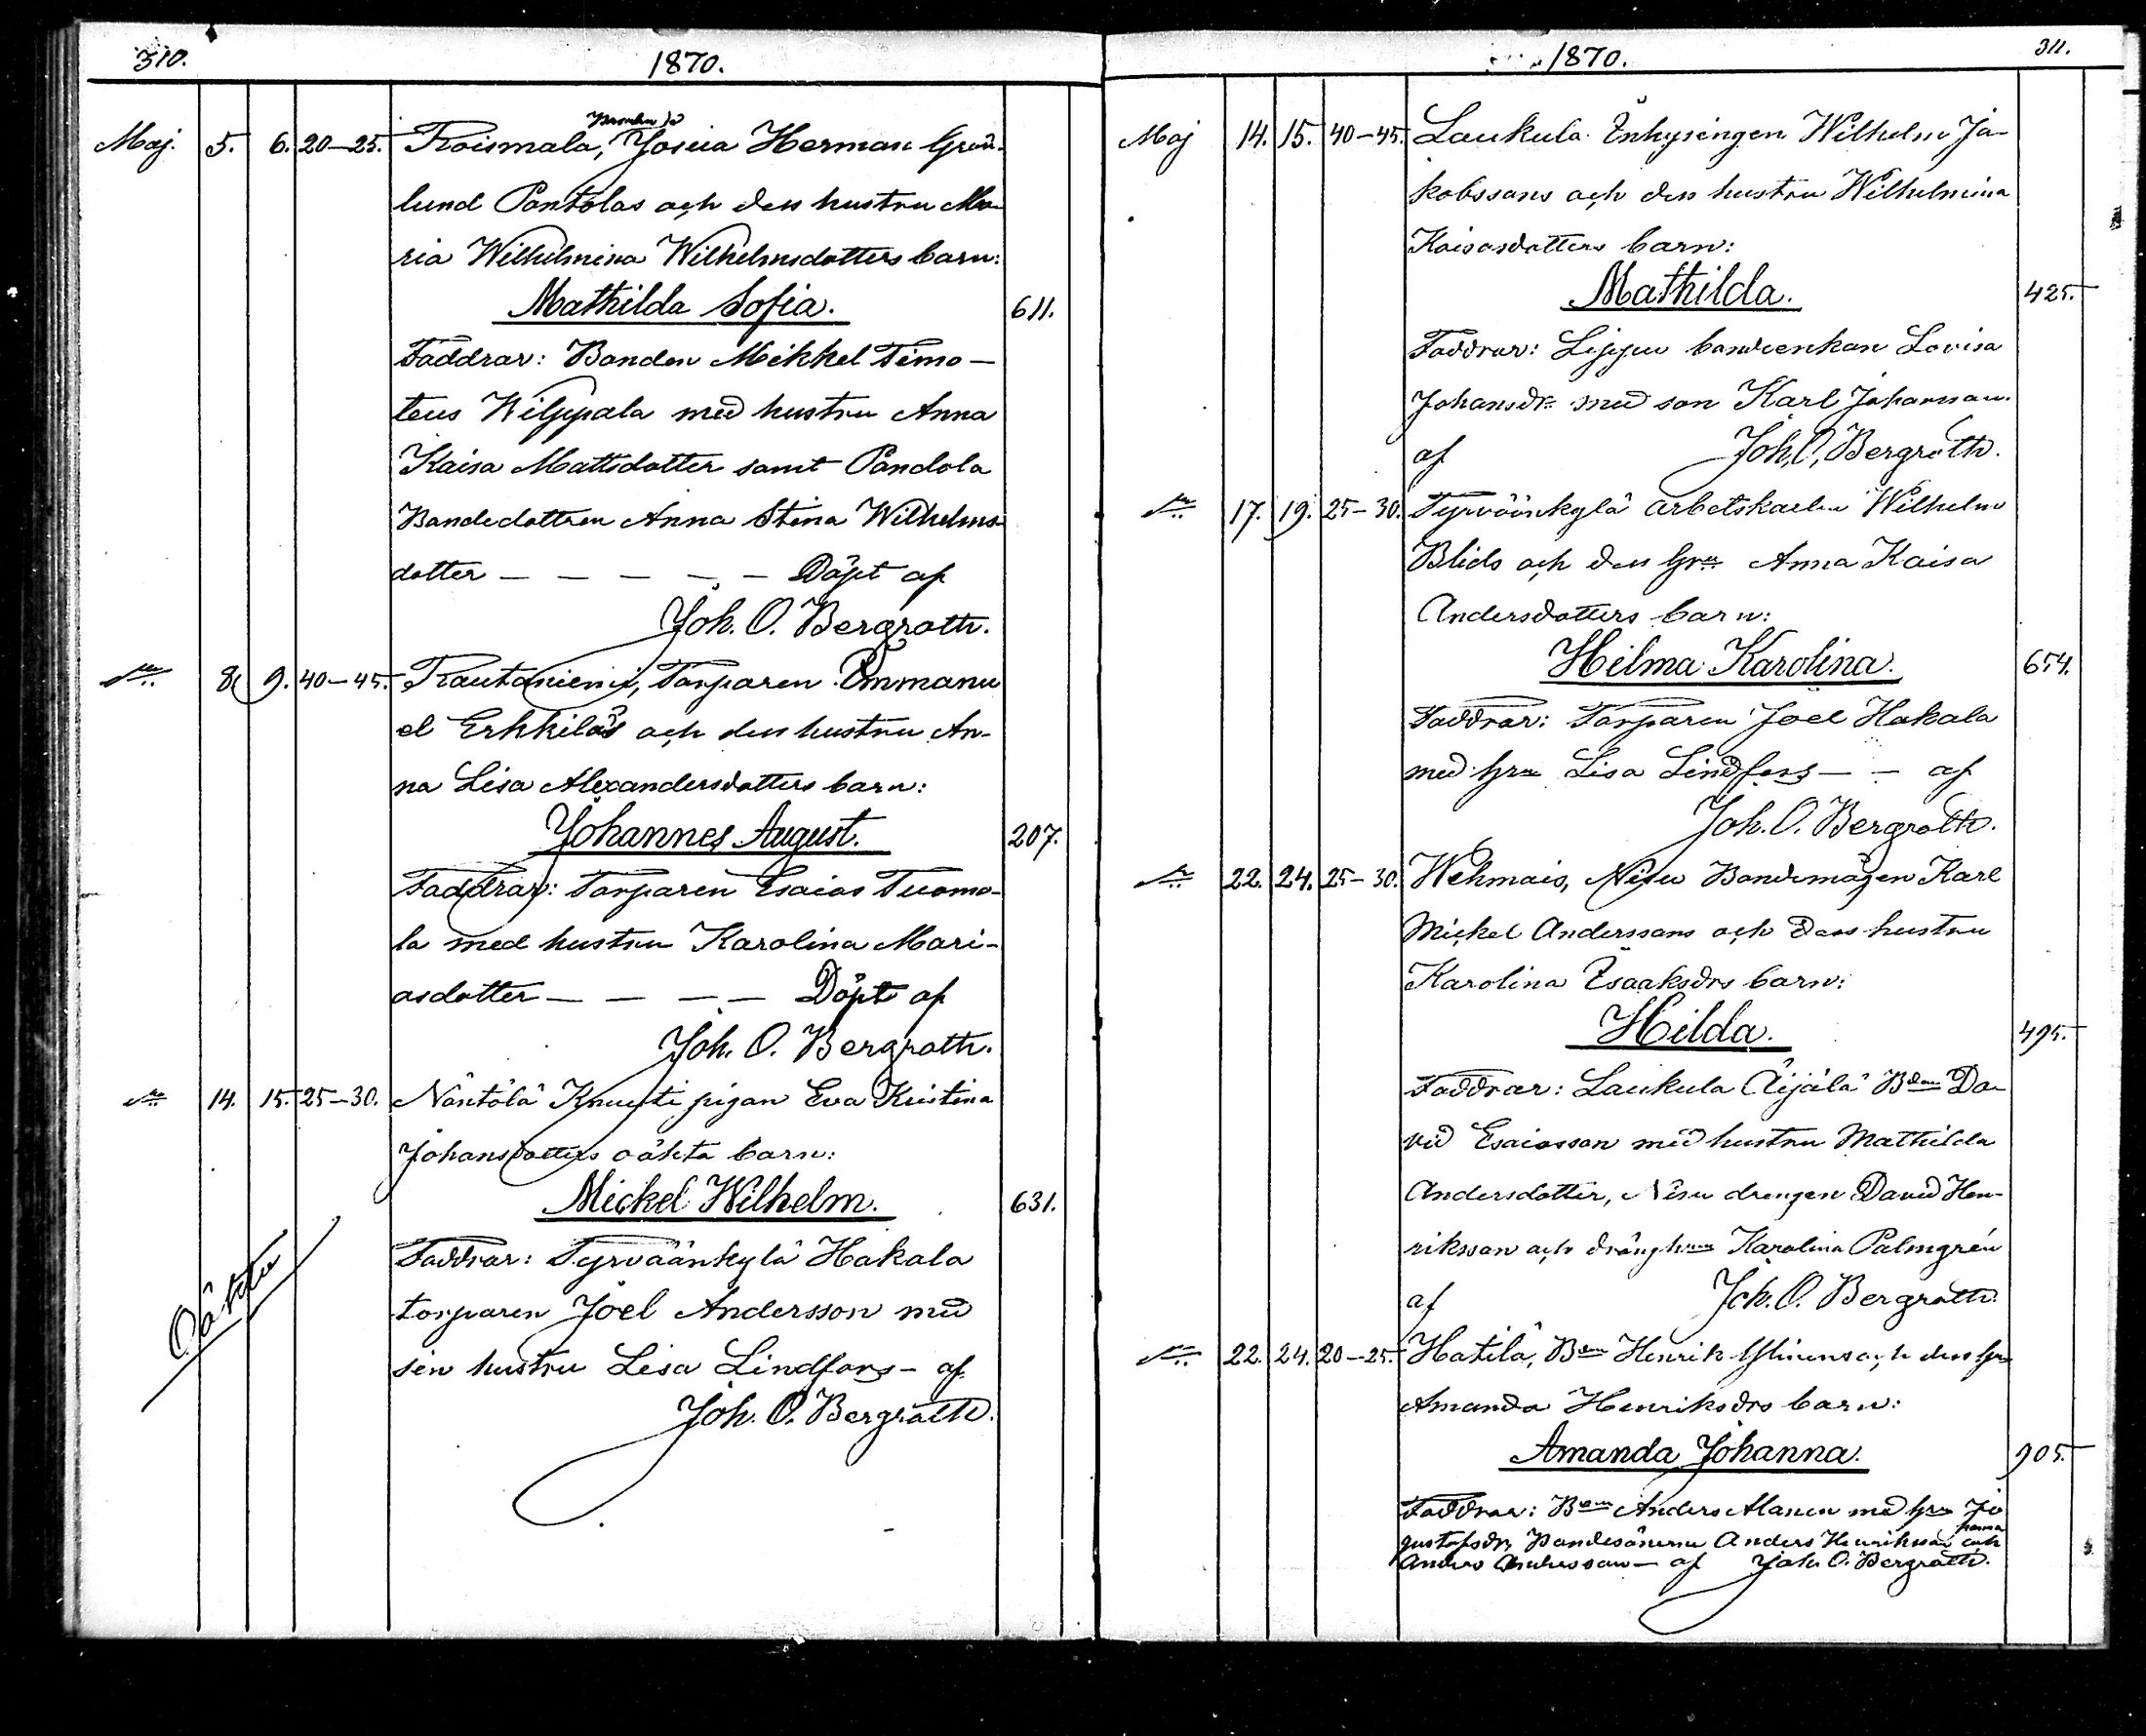 310.
1870.
Maj. 5. 6. 20–25. Roismala, Josua Herman Grön-
lund Pantolas och dess hustru Ma-
ria Wilhelmina Wilhelmsdotters barn:
Mathilda Sofia. 611.
Faddrar: Bonden Mikkel Timo-
teus Wilppala med hustru Anna
Kaisa Mattsdotter samt Pandola
Bondedottren Anna Stina Wilhelms-
dotter — — — — — Döpt af
Joh. O. Bergroth.
8. 9. 40–45. Rautanieni, Torparen Emmanu
el Erkkiläs och dess hustru An-
na Lisa Alexandersdotters barn:
Johannes August. 207.
Faddrar: Torparen Esaias Tuomo-
la med hustru Karolina Mari-
asdotter — — — — Döpt af
Joh. O. Bergroth.
14. 15. 25–30. Näntölä Knuuti pigan Eva Kristina
Johansdotters oäkta barn:
Mickel Wilhelm. 631.
Oäkta
Faddrar: Tyrväänkylä Hakala
torparen Joel Andersson med
sin hustru Lisa Lindfors – af
Joh. O. Bergroth.
1870.
311.
Maj 14. 15. 40–45. Laukula Inhysingen Wilhelm Ja-
kobssons och dess hustru Wilhelmina
Kaisasdotters barn:
Mathilda. 425.
Faddrar: Lippu bondeenkan Lovisa
Johansdr. med son Karl Johansson.
af Joh. O. Bergroth.
17. 19. 25–30. Tyrväänkylä arbetskarlen Wilhelm
Blids och dess hru Anna Kaisa
Andersdotters barn:
Hilma Karolina. 654.
Faddrar: Torparen Joel Hakala
med hru Lisa Lindfors — — af
Joh. O. Bergroth.
22. 24. 25–30. Wehmais, Nisu Bondemågen Karl
Mickel Anderssons och dess hustru
Karolina Isaaksdrs barn:
Hilda. 495.
Faddrar: Laukula Äijälä Bden Da-
vid Esaiasson med hustru Mathilda
Andersdotter, Nisu drengen David Hen-
riksson och dränghun Karolina Palmgrén
af Joh. O. Bergroth.
22. 24. 20–25. Hatila, Bden Henrik och dess hru
Amanda Henriksdrs barn:
Amanda Johanna. 905.
Faddrar: Bden Anders Alanen med hru Jo
hanna
Gustafsdr, Bondesönerna Anders Henriksson och
Anders Andersson — af Joh. O. Bergroth.